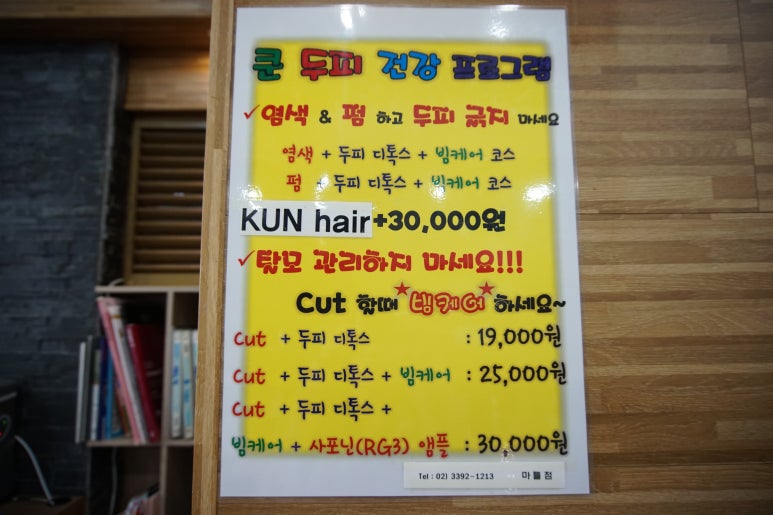 큰 두피 건강 프로그램
✓염색 & 펌 하고 두피 긁지 마세요
염색 + 두피 디톡스 + 빔케어 코스
펌 + 두피 디톡스 + 빔케어 코스
KUN hair+30,000원
✓탈모 관리하지 마세요!!!
Cut 할때 ★빔케어★ 하세요~
Cut + 두피 디톡스 : 19,000원
Cut + 두피 디톡스 + 빔케어 : 25,000원
Cut + 두피 디톡스 +
빔케어 + 사포닌(RG3) 앰플 : 30,000원
Tel : 02) 3392-1213 마들점